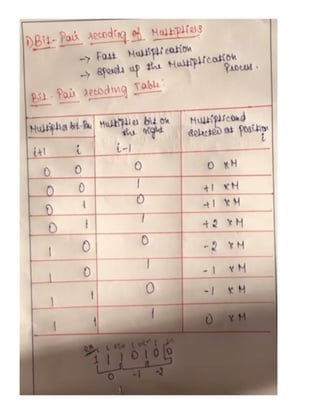 1) Bit-Pair recoding of Multipliers
→ Fast Multiplication
→ speeds up the Multiplication
Process.
Bit-Pair recoding Table:
Multiplier bit-Pair Multiplier bit on the right Multiplicand selected at position i
i+1 i i-1
0 0 0 0 × M
0 0 1 +1 × M
0 1 0 +1 × M
0 1 1 +2 × M
1 0 0 -2 × M
1 0 1 -1 × M
1 1 0 -1 × M
1 1 1 0 × M
1 1 1 0 1 0 0
0 -1 -2